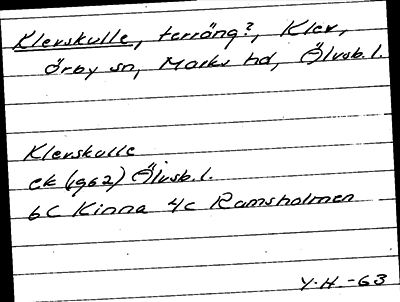 Klevskulle, terräng?, Klev,
Örby sn, Marks hd, Älvsb. l.
Klevskulle
ek (1962) Älvsb. l.
6C Kinna 4c Ramsholmen
Y.H.-63